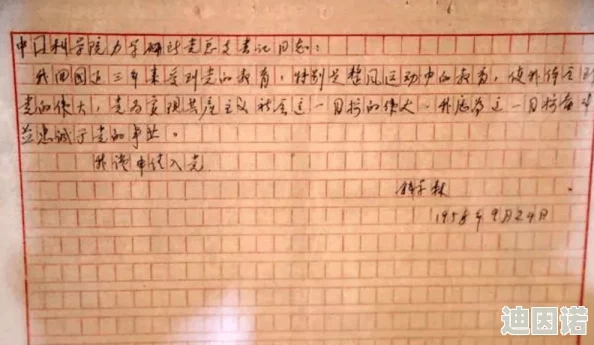 中国科学院力学研究所党总支书记同志：
我回国近三年来受到党的教育，特别是整风运动中的教育，使我体会到
党的伟大，党为实现共产主义社会这一目标的伟大。我愿为这一目标奋斗
并忠诚于党的事业。
我谨申请入党
钱学森
1958年9月24日
迪因诺